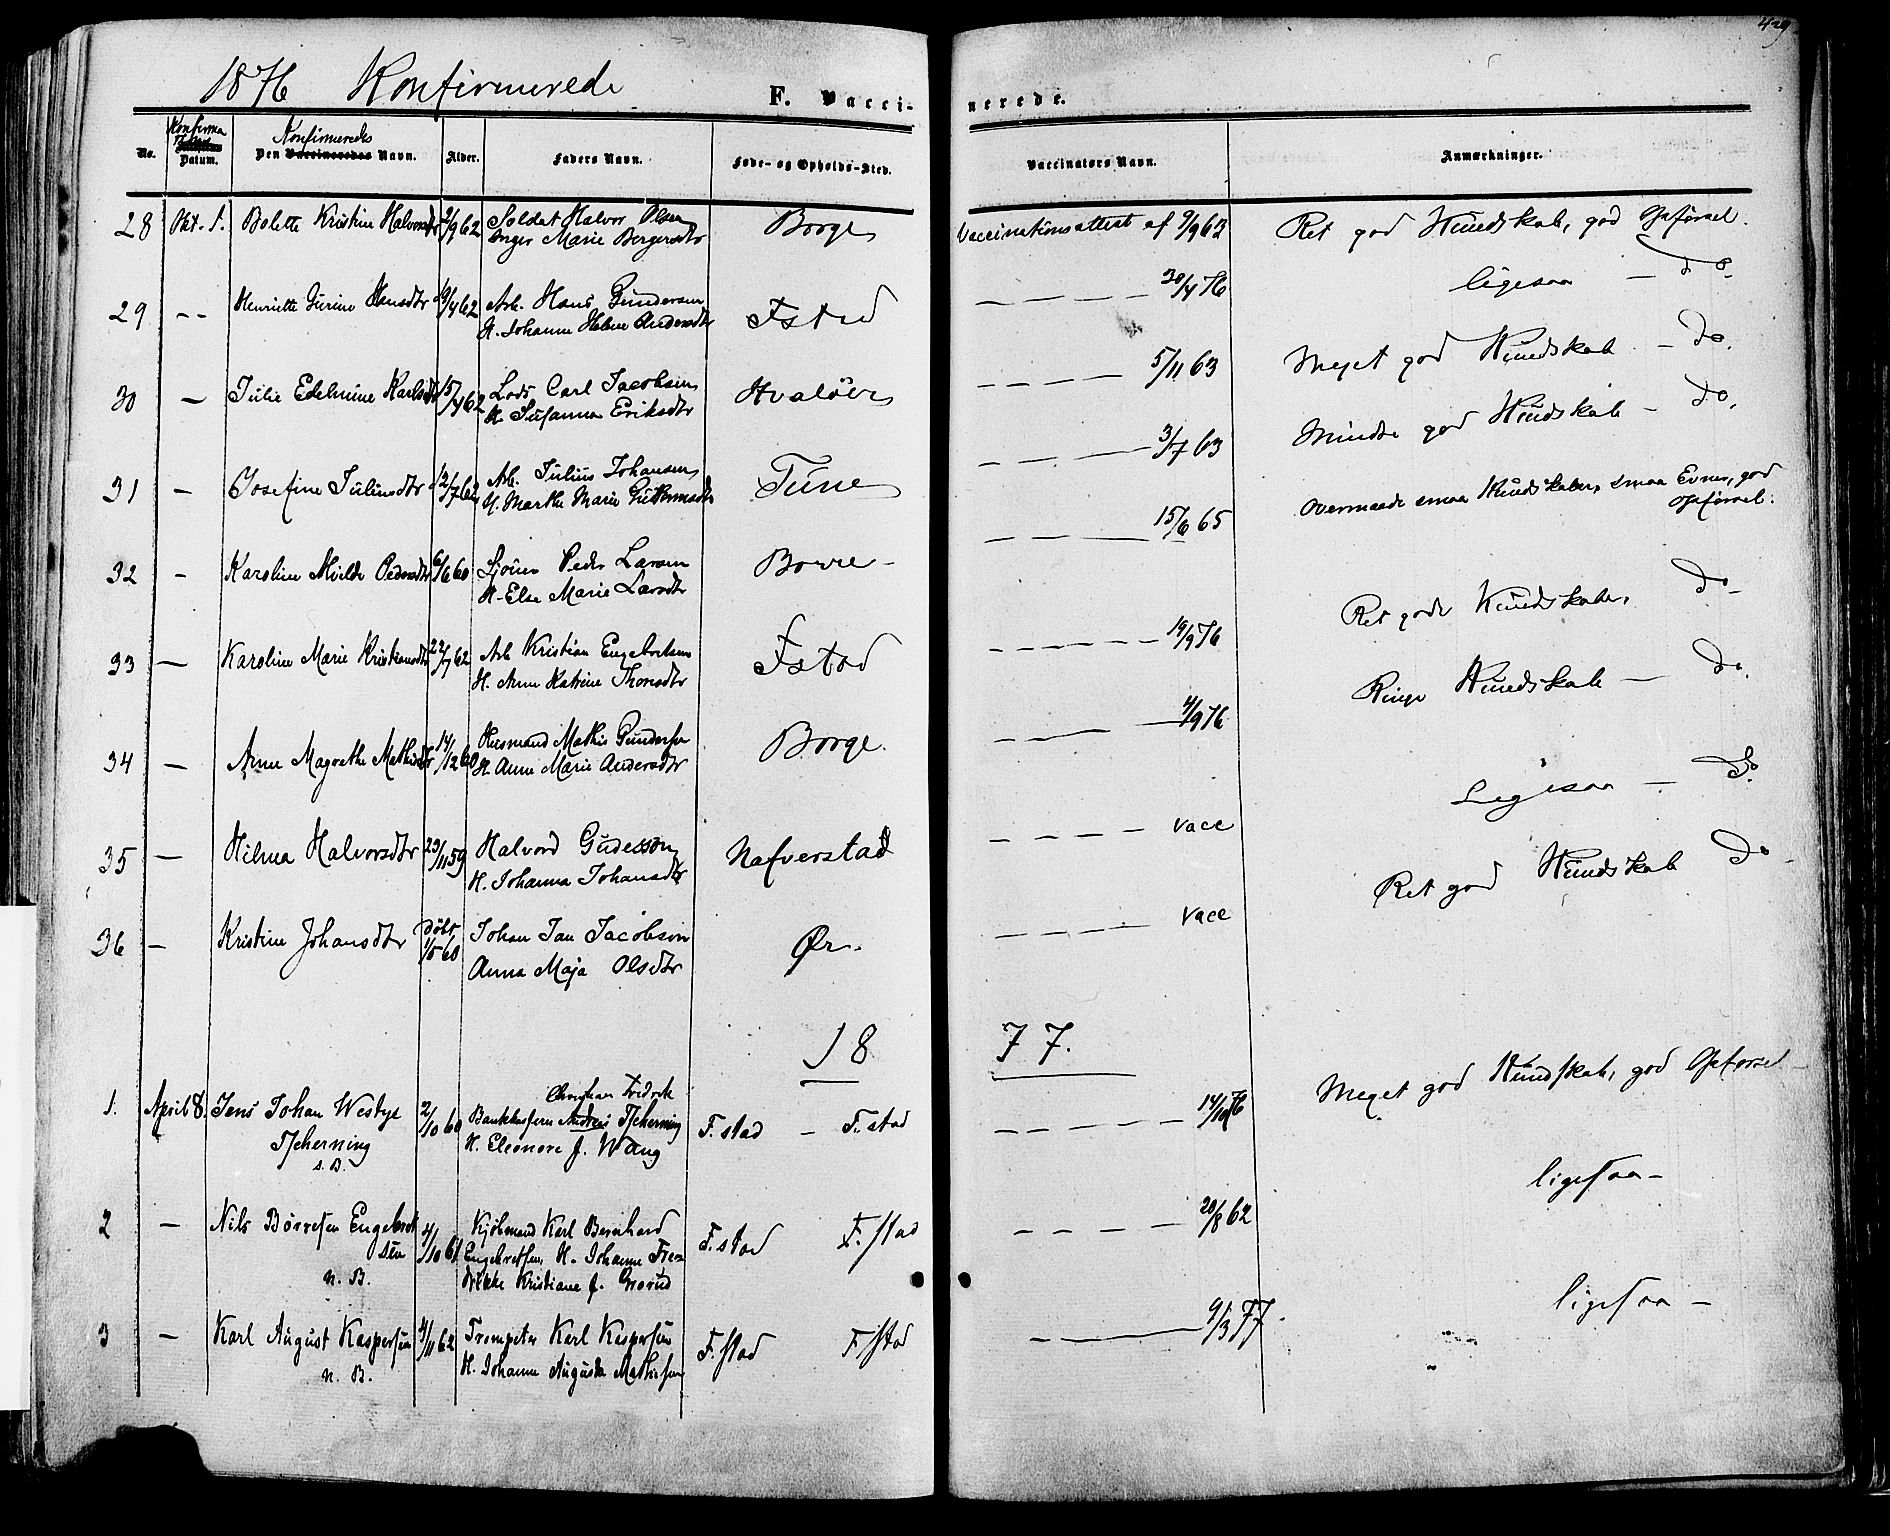 429
1876 Konfirmerede
F. Vacci-
nerede.
No.
Konfirma
Datum.
Konfirmeredes
Den Vaccineredes Navn.
Alder.
Faders Navn.
Føde- og Opholds-Sted.
Vaccinators Navn.
Anmærkninger.
28 Okt. 1. Bolette Kristine Halvorsdtr 2/9 62 Soldat Halvor Olsen Borge Vaccinationsattest af 9/9 63 Ret god Kundskab, god Opførsel.
Inger Marie Bergersdtr
29 -- Henriette Hansdtr 9/4 62 Arb. Hans Gundersen Fstad — — — — 30/4 76 ligesaa — Do.
H. Johanne Helene Andersdtr
30 — Julie Edelmine Karlsdtr 15/4 62 Lods Carl Jacobsen Hvaløer — — — — 5/11 63 Meget god Kundskab — Do.
H. Susanna Eriksdtr
31 — Josefine Juliusdtr 12/7 62 Arb. Julius Johansen Tune — — — — 3/7 63 Mindre god Kundskab — Do.
H. Marthe Marie Guttormsdtr
32 - Karoline Milde Pedersdtr 6/6 60 Peder Larsen Borre - — — — — 15/6 65 overmaade smaa Kundskaber, smaa Evner, god
Opførsel.
H. Else Marie Larsdtr
33 — Karoline Marie Kristiansdtr 22/7 62 Arb Kristian Engebretsen Fstad — — — — 19/9 76 Ret gode Kundskaber, Do -
H. Anne Katrine Thorsdtr
34 — Anne Magrethe Mathisdtr 14/12 60 Husmand Mathis Gundersen Borge. — — — 4/9 76 Ringe Kundskab — Do.
H. Anne Marie Andersdtr
35 — Hilma Halvorsdtr 23/11 59 Halvord Gudesson Nafverstad — — — — vacc Ligesaa — Do.
H. Johanna Johansdtr
36 — Kristine Johansdtr Døbt 1/5 60 Johan Jan Jacobson Ør. — — — — vacc Ret god Kundskab Do -
Anna Maja Olsdtr
18 77.
1. April 8. Jens Johan Westye 2/10 60 Christian Fredrik F. stad — F. stad — — — — 14/10 76 Meget god Kundskab, god Opførsel
Andreas Tscherning
Tscherning
s. B.
H. Eleonore f. Wang
2 — Nils Børresen Engebret 4/10 61 Kjøbmand Karl Bernhard F. stad F. stad — — — — 20/8 62 ligesaa —
sen Engebretsen, H. Johanne Fre=
n. B. drikke Kristiane f. Grorud
3 — Karl August Kaspersen 4/11 62 Trompeter Karl Kaspersen F. stad F. stad — 9/3 77. ligesaa —
n. B. H. Johanne Auguste Mathisen